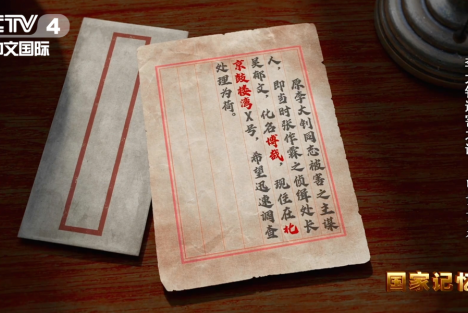 CTV 4
中文国际
原李大钊同志被害之主谋
人，即当时张作霖之侦缉处长
吴郁文，化名博哉，现住在北
京鼓楼湾X号，希望迅速调查
处理为荷。
国家记忆